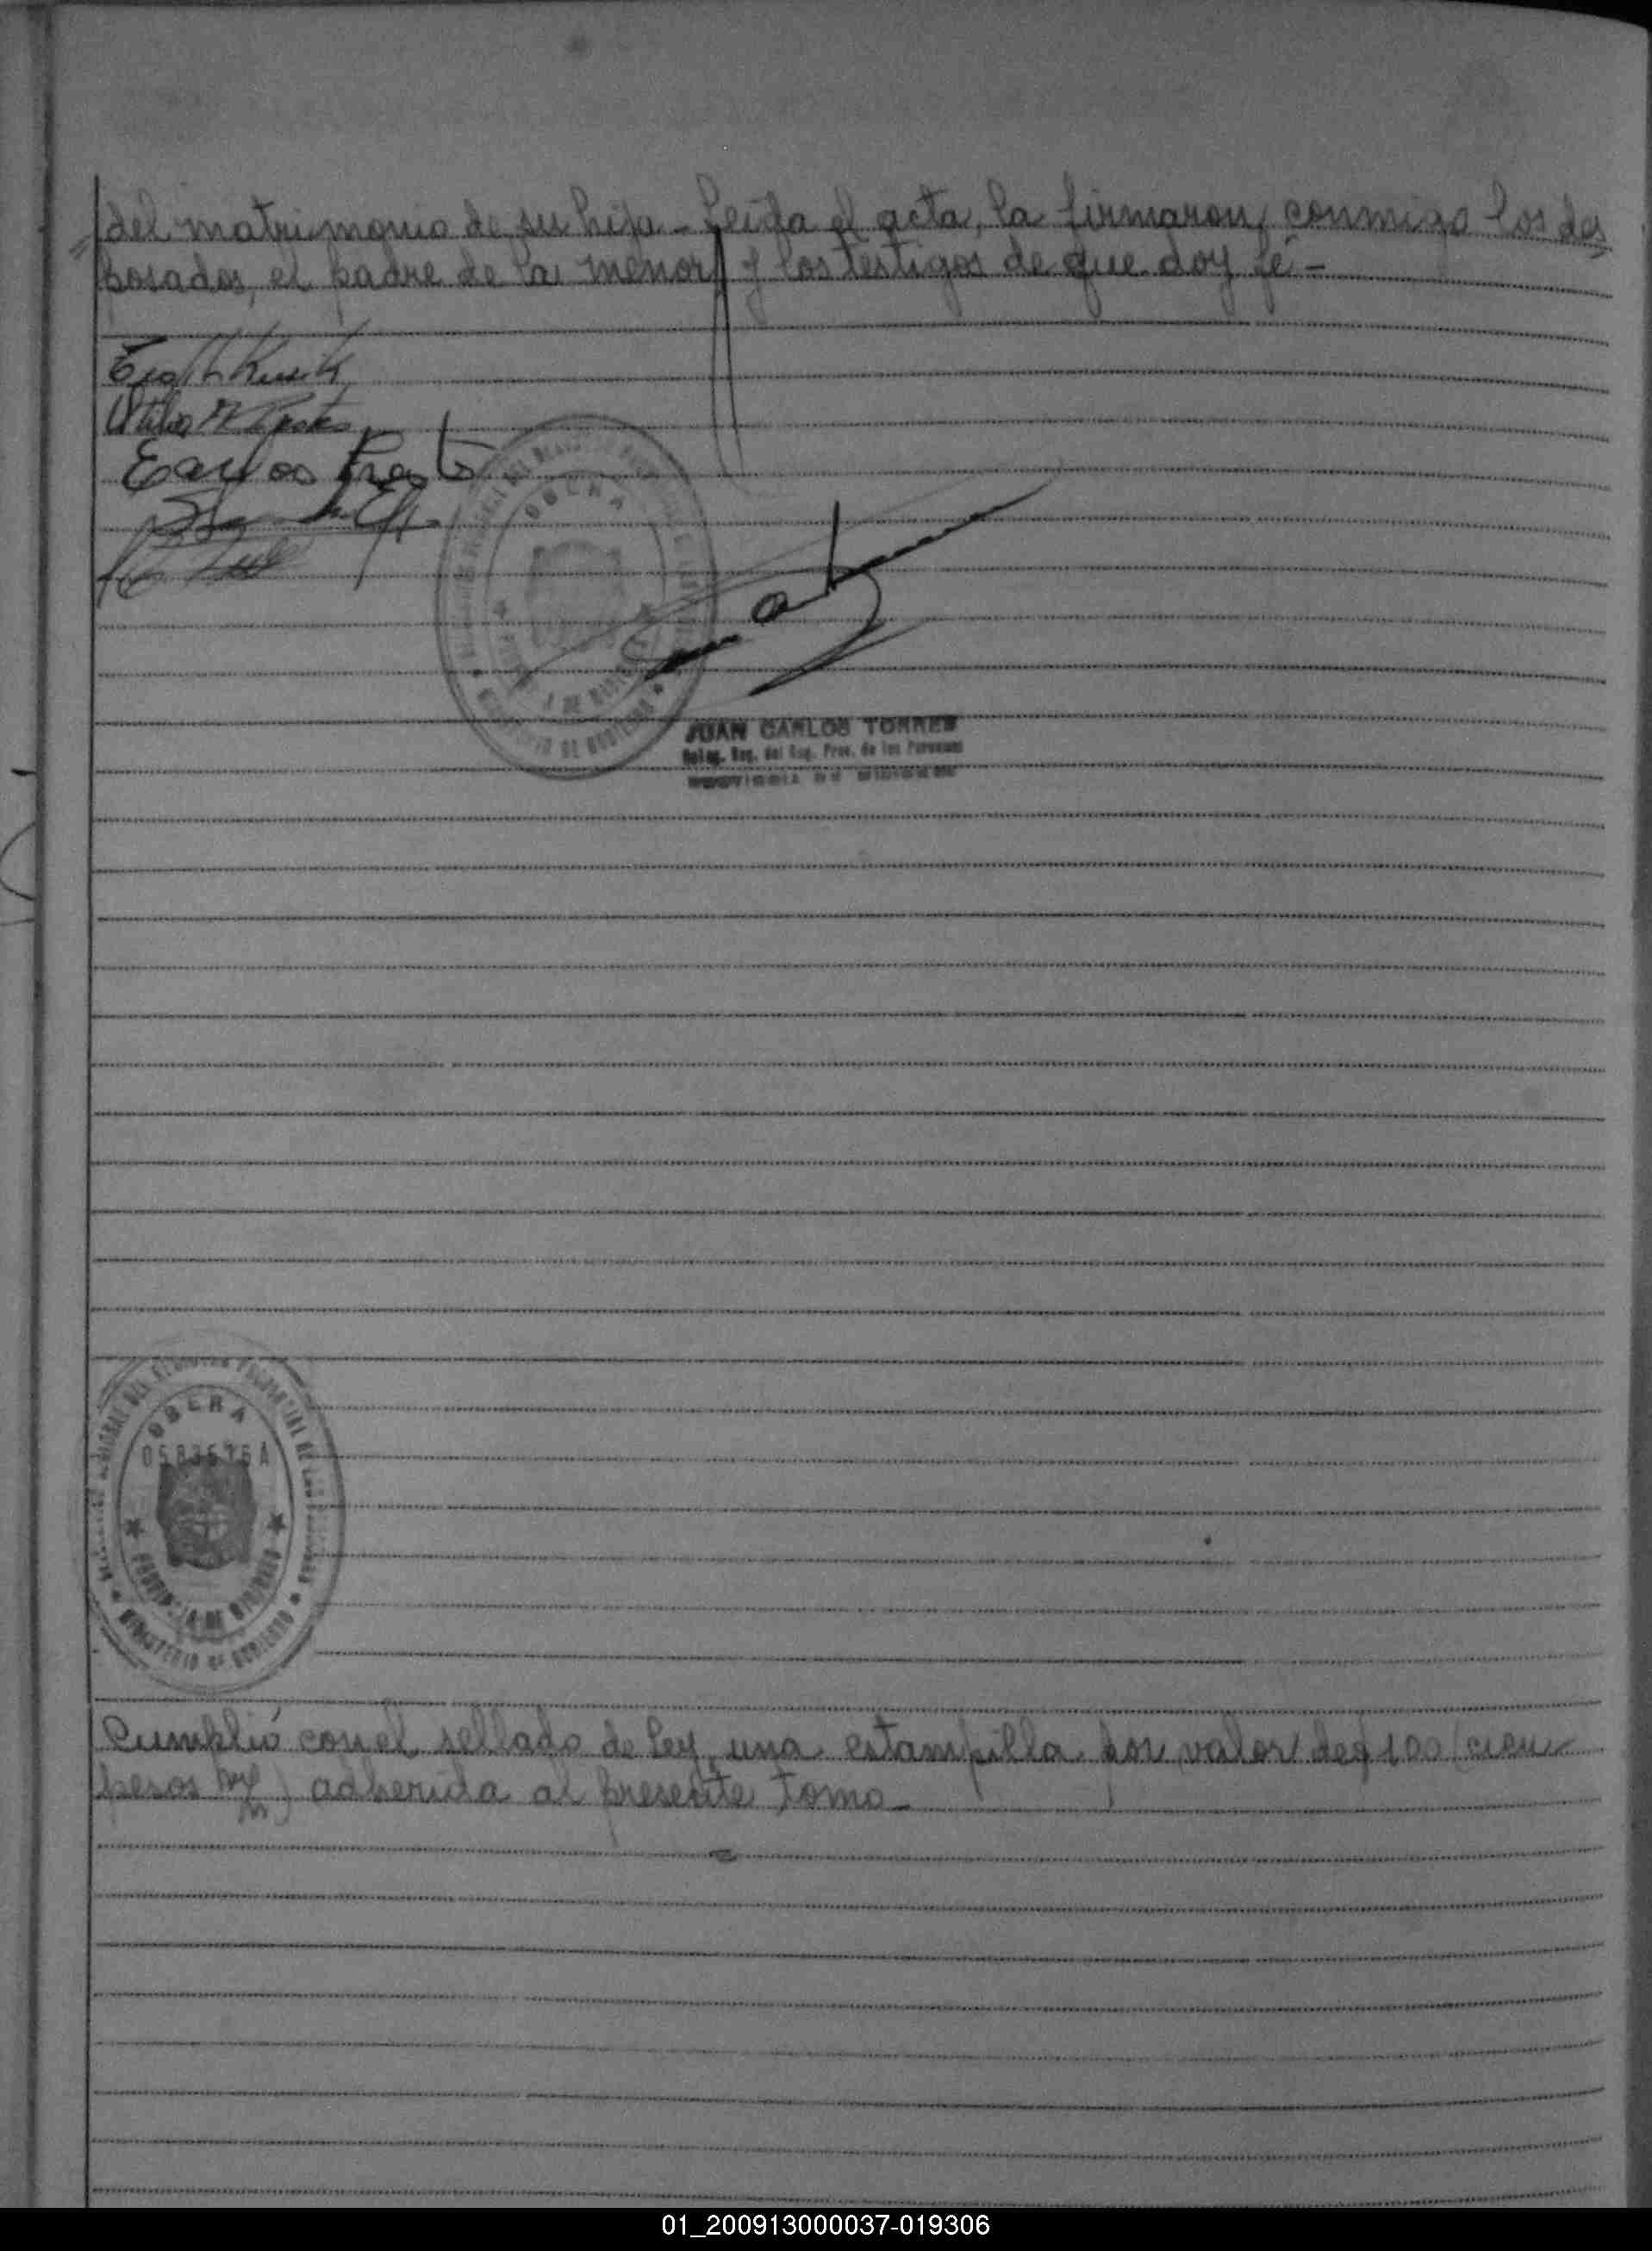 del matrimonio de su hija - Leída el acta, la firmaron conmigo los des
posados, el padre de la menor y los testigos de que doy fé -
Carlos
OBERA
JUAN CARLOS TORRES
Deleg. Reg. del Reg. Prov. de las Personas
OBERA
0583576A
PROVINCIA DE MISIONES
MINISTERIO DE GOBIERNO
Cumplió con el sellado de Ley, una estampilla por valor de $ 100 (cien
pesos m/n) adherida al presente tomo -
01_200913000037-019306